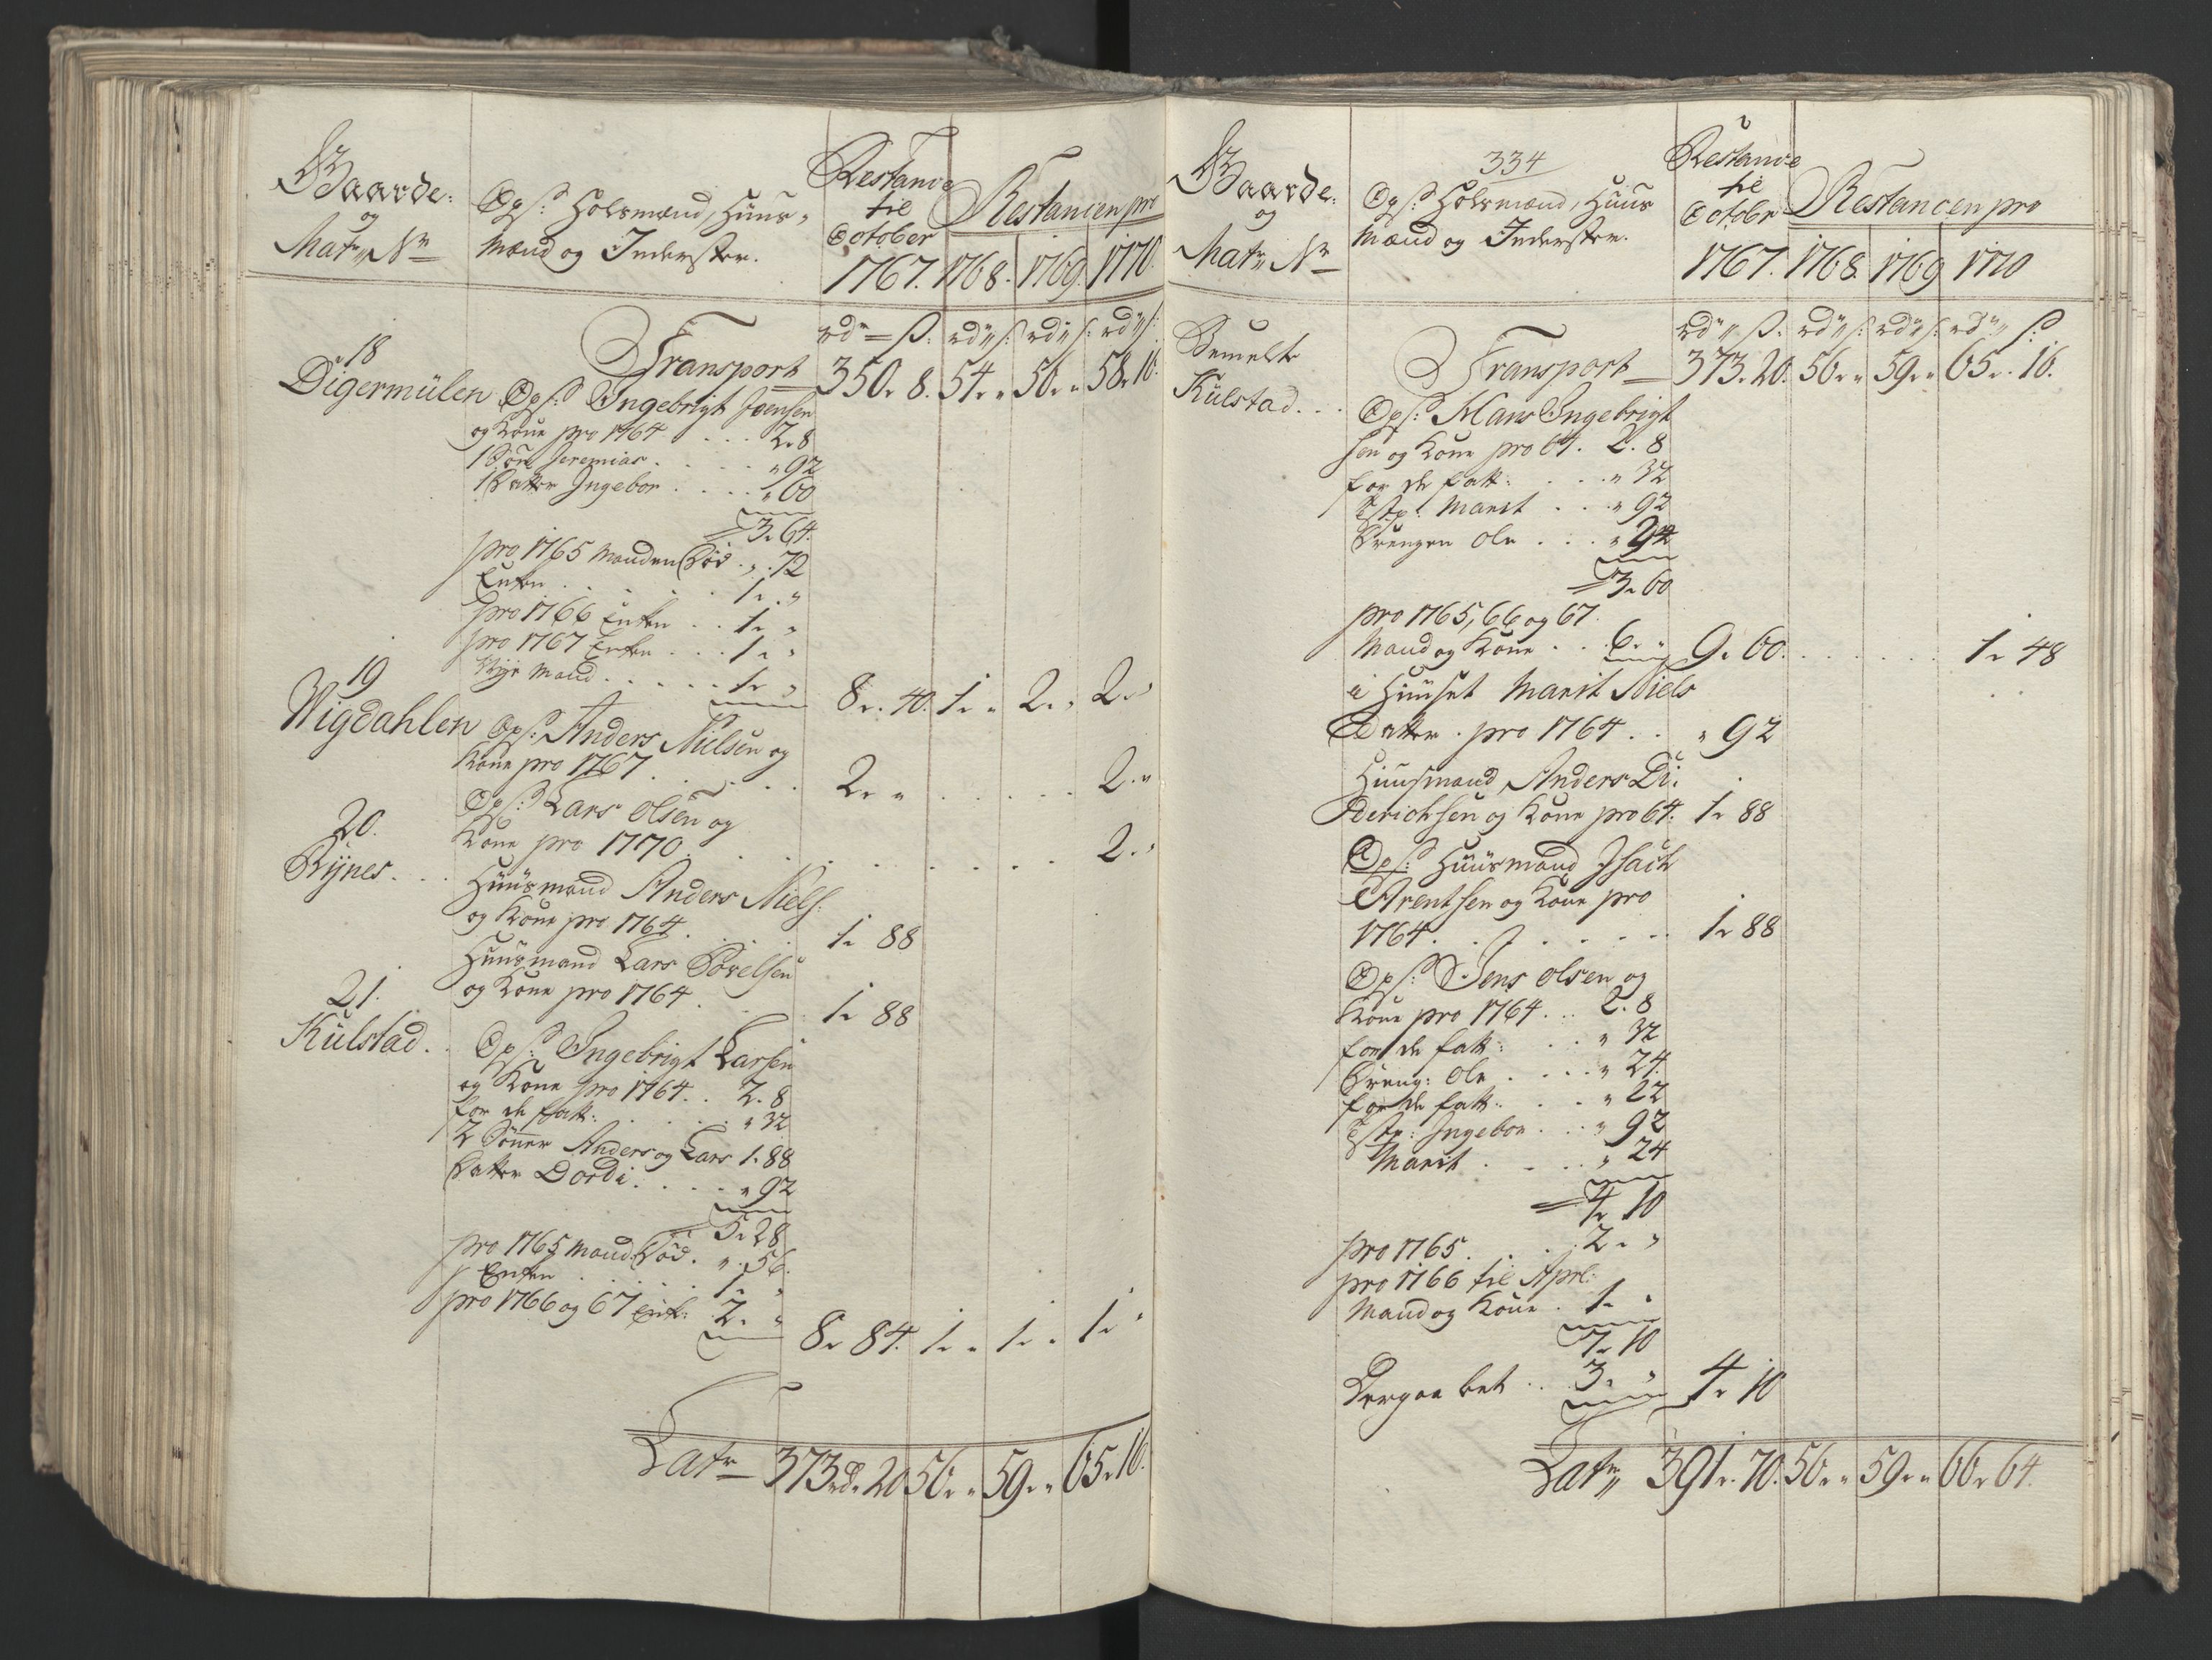 Gaarde:
og
Matr„ No
Ops: Holsmænd, Huus-
Mænd og Inderster.
Restance
til
October
1767.
Restancen pro
1768. 1769. 1770.
rdr = s: rd„ s: rd„ s: rd„ s:
18
Transport 350. 8. 54. „ 56. „ 58. 16.
Digermülen Ops: Ingebrigt Joensen
og Kone pro 1764 . . . 2. 8
1 Søn Jeremias . . . . „ 92
1 Datter Ingebor . . . . „ 60
3. 64.
pro 1765 Manden Død . „ . 72
Enken . . . . . 1. „
pro 1766 Enken . . 1. „
pro 1767 Enken . . . 1. „
Nye Mand . . . . . 1. „ 8. 40. 1. „ 2. „ 2. „
19
Wigdahlen Ops: Anders Nielsen og
Kone pro 1767 . . . . . 2. „ . . . . . 2. „
Ops: Lars Olsen og
Kone pro 1770 . . . . . . . . 2. „
20.
Rÿnes . . . Huusmand Anders Niels:
og Kone pro 1764 . . . . 1. 88
Huusmand Lars Povelsen
og Kone pro 1764 . . . 1. 88
21.
Kulstad . . Ops: Ingebrigt Larsen
og Kone pro 1764 . . 2. 8
for de fatt: . . . . . „ 32
2 Sønner Anders og Lars 1. 88
Datter Dordi . . . . „ 92
5. 28
pro 1765 Mand: Død . „ . 56.
Enken . . . . . 1. „
pro 1766 og 67 Enk: 2. „ 8. 84. 1. „ 1. „ 1. „
Latr 373 rd. 20 56. „ 59. „ 65. 16.
334
Gaarde:
og
Matr„ No
Ops: Holsmænd, Huus
Mænd og Inderster.
Restance
til
Octobr
1767.
Restancen pro
1768. 1769 1770
rdr„ s: rd„ s: rd„ s: rdr„ s:
Bemelte
Transport 373. 20. 56. „ 59. „ 65. 16.
Kulstad . . . Ops: Hans Ingebrigt
sen og Kone pro 64. 2. 8
for de fatt: . . . „ 32
Tstp: Marit . . . „ 92
Drengen Ole . . . „ 24
3. 60
pro 1765, 66 og 67.
Mand og Kone . . . 6. „ 9. 60. . . . . . . 1. 48
i Huuset Marit Niels
Datter . pro 1764 . . „ 92
Huusmand Anders Di:
derichsen og Kone pro 64. 1. 88
Ops: Huusmand Isach
Arentsen og Kone pro
1764 . . . . . . . 1. 88
Ops: Jens Olsen og
Kone pro 1764 . . . 2. 8
for de fatt: . . „ 32
Dreng: Ole . . . . „ 24.
for de fatt: . . „ 22
Tstp: Ingebor . . . „ 92
Marit . . . . „ 24
4. 10
pro 1765 . . . . 2. „
pro 1766 til Apri:
Mand og Kone . 1. „
7. 10
Derpaa bet . . 3. „ 4. 10
Latr„ 391. 70. 56. „ 59. „ 66. 64.